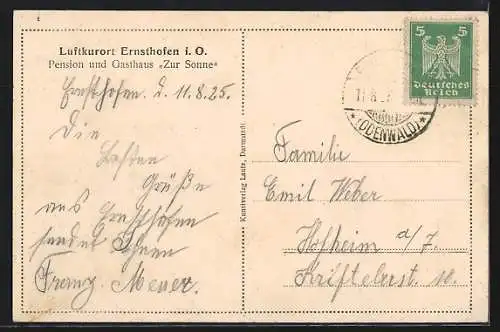 Luftkurort Ernsthofen i. O.
Pension und Gasthaus „Zur Sonne“
Ernsthofen d. 11.8.25.
Die
besten
Grüße
aus Ernsthofen
sendet Ihnen
Franz Meuer.
Kunstverlag Lautz, Darmstadt.
5 5
Deutsches
Reich
(ODENWALD)
Familie
Emil Weber
Hofheim a/T.
Kriftelerst. 10.